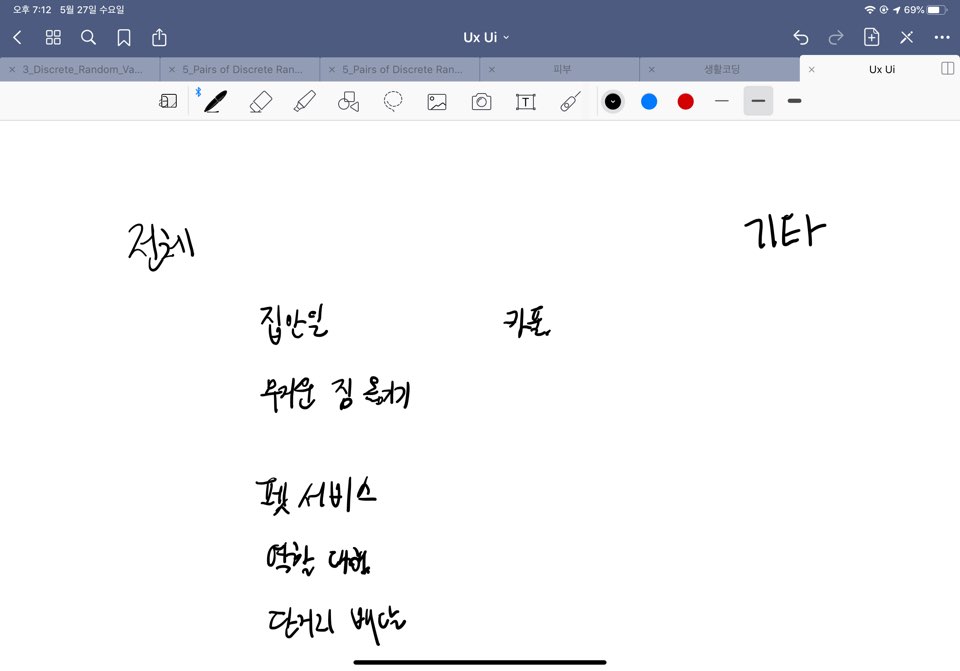 오후 7:12 5월 27일 수요일 69%
Ux Ui
3_Discrete_Random_Va... 5_Pairs of Discrete Ran... 5_Pairs of Discrete Ran... 피부 생활코딩 Ux Ui
T
전체 기타
집안일 카풀
무거운 짐 옮기기
펫 서비스
역할 대행
단거리 배달